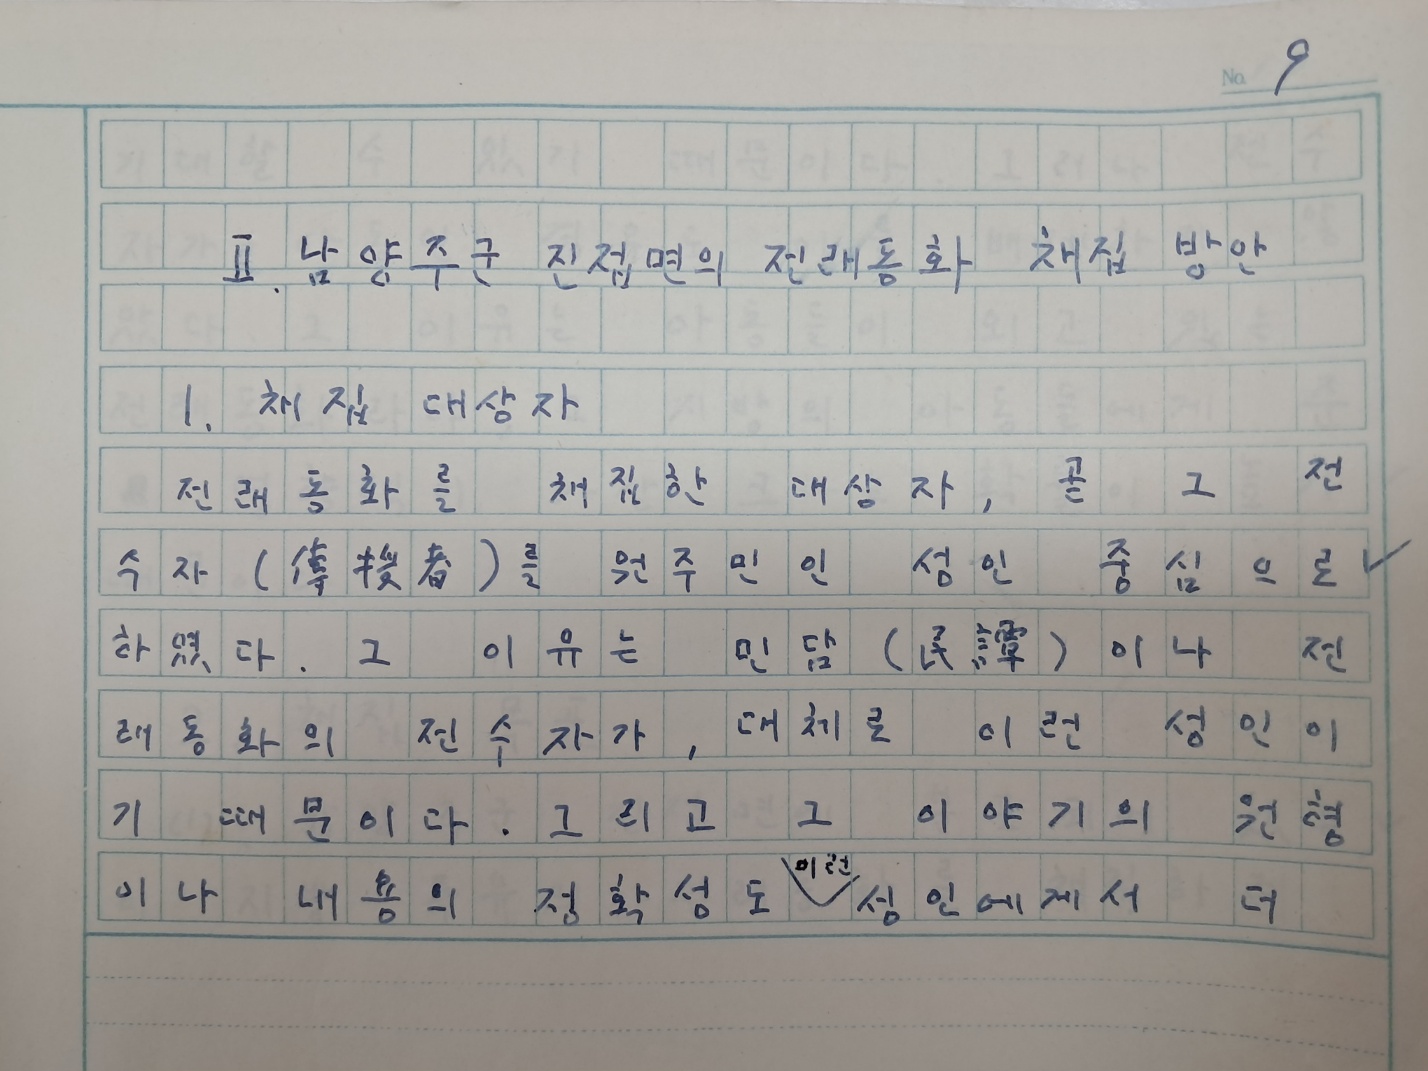 No. 9
Ⅱ. 남양주군 진접면의 전래동화 채집 방안
1. 채집 대상자
전래동화를 채집한 대상자, 곧 그 전
수자(傳授者)를 원주민인 성인 중심으로
하였다. 그 이유는 민담(民譚)이나 전
래동화의 전수자가, 대체로 이런 성인이
기 때문이다. 그리고 그 이야기의 원형
이나 내용의 정확성도 이런 성인에게서 더